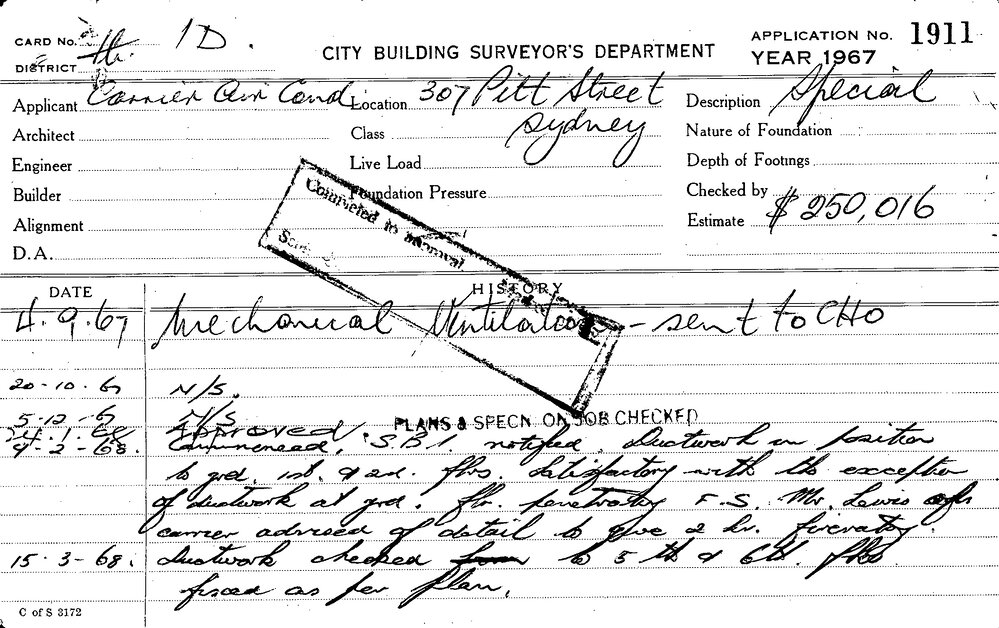 CARD No. 1D.
DISTRICT
CITY BUILDING SURVEYOR'S DEPARTMENT
APPLICATION No. 1911
YEAR 1967
Applicant Carrier Air Cond. Location 307 Pitt Street Description Special
Architect Class Sydney Nature of Foundation
Engineer Live Load Depth of Footings
Builder Foundation Pressure Checked by
Alignment Estimate $250,016
D.A.
Completed to approval.
DATE HISTORY
4.9.67 Mechanical Ventilation - sent to CHO
20-10-67 N/S.
5-12-67 N/S
PLANS & SPECN. ON JOB CHECKED
24.1.68 Approved
9-2-68. Commenced. S.B.I. notified. Ductwork in position
to grd. 1st. & 2nd. flrs. Satisfactory with the exception
of ductwork at grd. flr. penetrating F.S. Mr. Lewis
carrier advised of detail to give 2 hr. firerating.
15-3-68. Ductwork checked to 5th & 6th. flrs
fixed as per plan.
C of S 3172